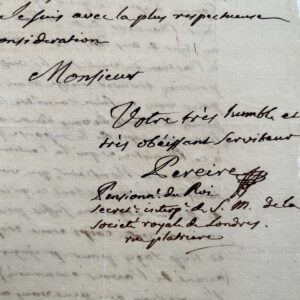 Je suis avec la plus respectueuse
consideration
Monsieur
Votre très humble et
très obéissant Serviteur
Pereire
Pensionn.ᵉ du Roi
Secret. interp. de S. M. de la
Société royale de Londres.
rue platriere